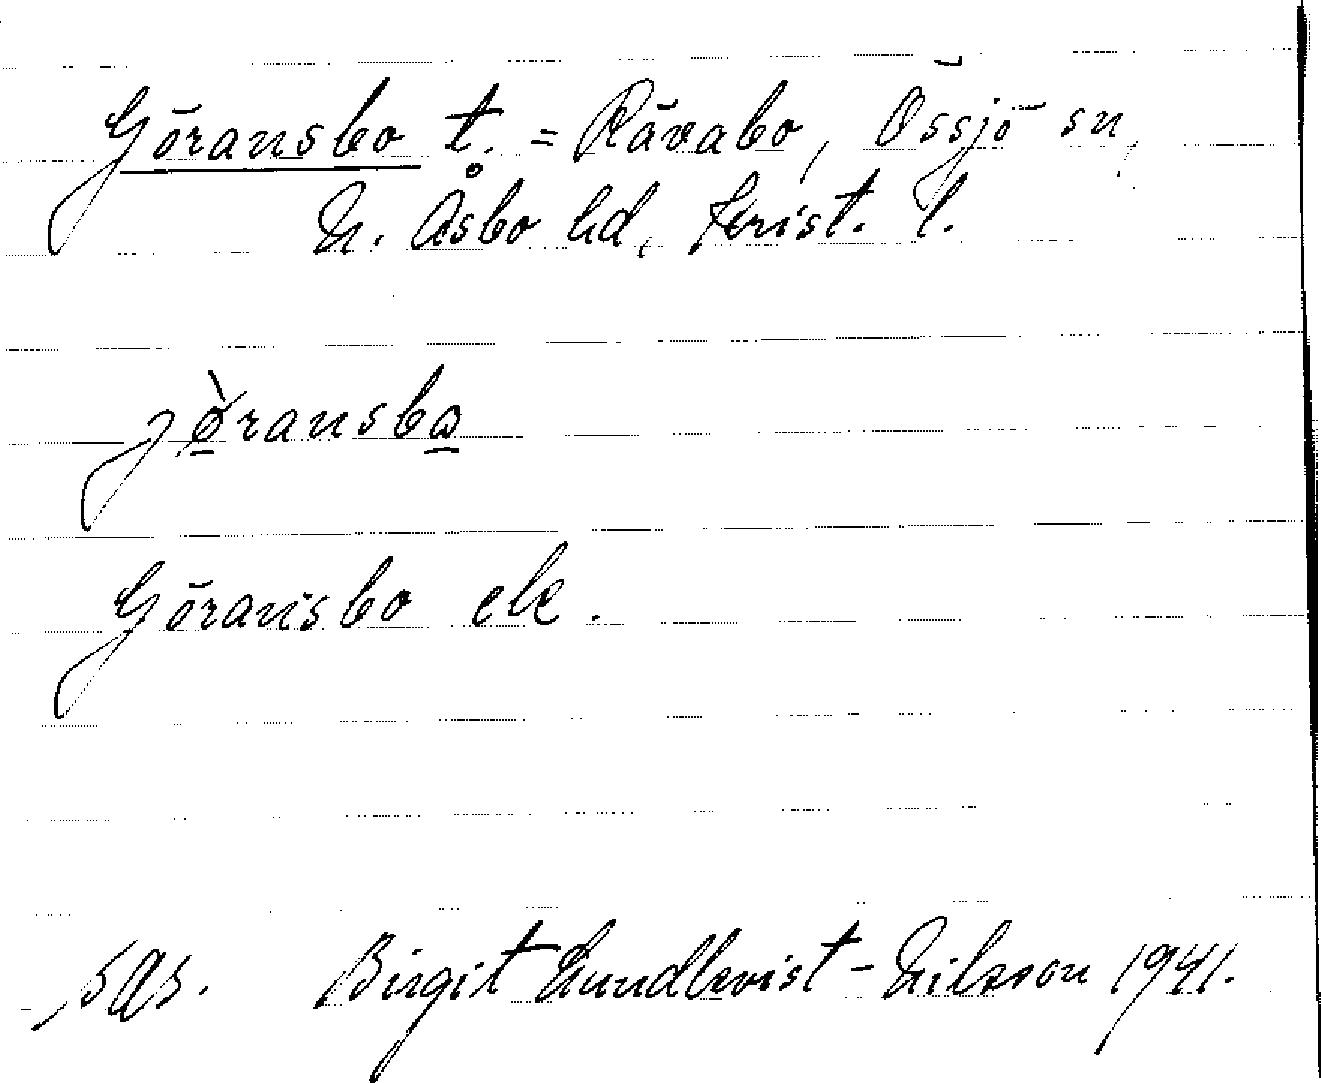 Göransbo t. = Rävabo, Össjö sn,
N. Åsbo hd, Krist. l.
jø̀ransbo
Göransbo ek.
SAS. Birgit Lundkvist-Nilsson 1941.